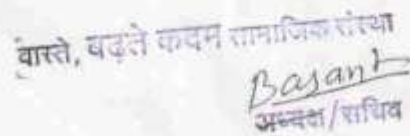 वास्ते, बढ़ते कदम सामाजिक संस्था
Basant
अध्यक्ष/सचिव